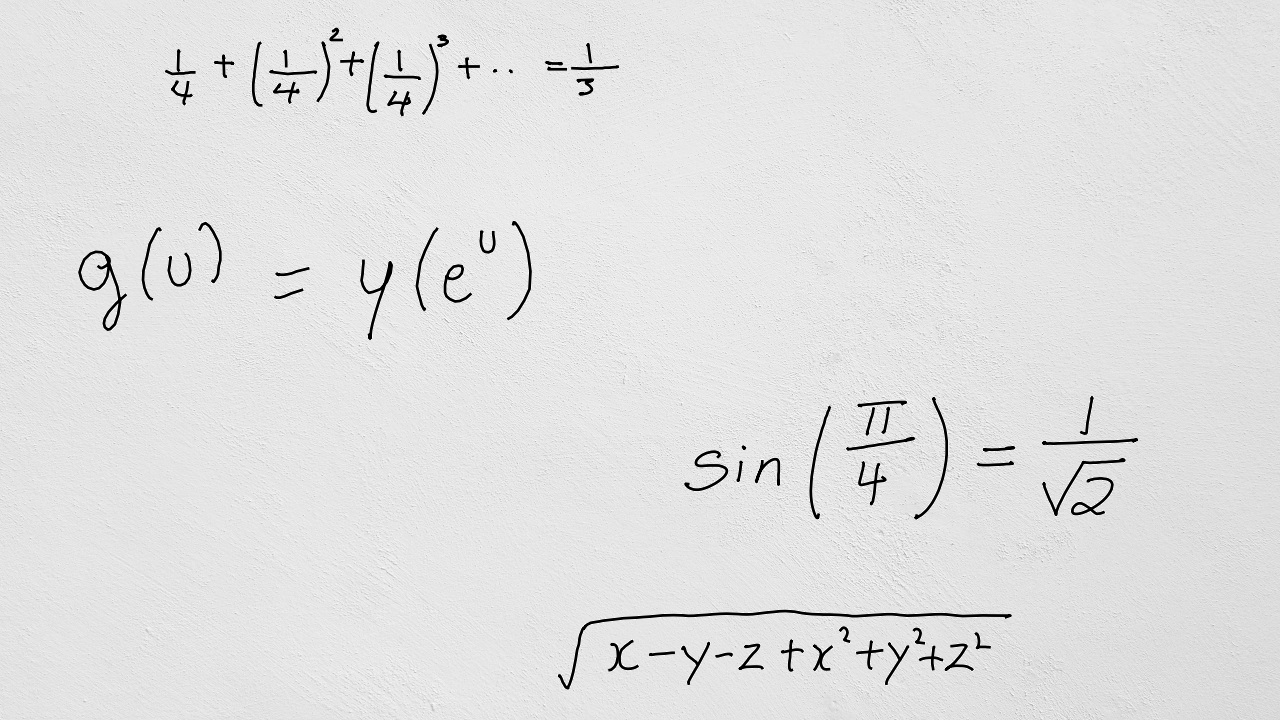 \frac{1}{4} + \left(\frac{1}{4}\right)^2 + \left(\frac{1}{4}\right)^3 + \cdot\cdot = \frac{1}{3}
g(u) = y(e^u)
\sin\left(\frac{\pi}{4}\right) = \frac{1}{\sqrt{2}}
\sqrt{x - y - z + x^2 + y^2 + z^2}